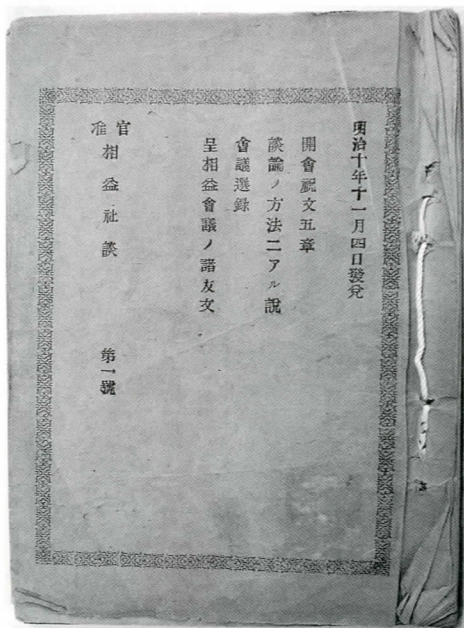 明治十年十一月四日發兌
開會祝文五章
談論ノ方法ニアル說
會議選錄
呈相益會議ノ諸友文
官准 相益社談 第一號